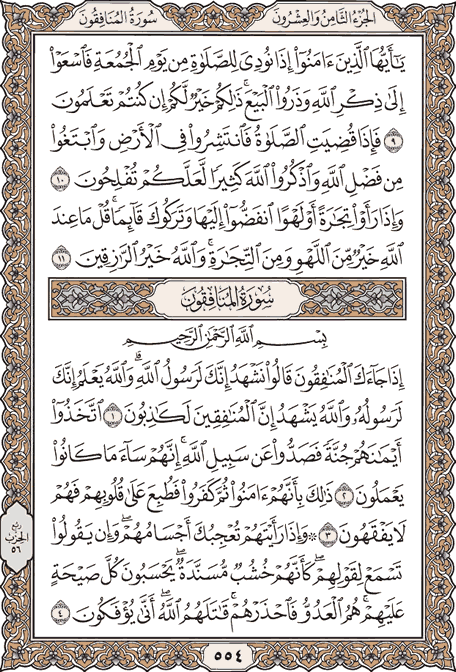 الجزء الثامن والعشرون
سورة المنافقون
يَـٰٓأَيُّهَا ٱلَّذِينَ ءَامَنُوٓا۟ إِذَا نُودِىَ لِلصَّلَوٰةِ مِن يَوْمِ ٱلْجُمُعَةِ فَٱسْعَوْا۟
إِلَىٰ ذِكْرِ ٱللَّهِ وَذَرُوا۟ ٱلْبَيْعَ ۚ ذَٰلِكُمْ خَيْرٌ لَّكُمْ إِن كُنتُمْ تَعْلَمُونَ
٩ فَإِذَا قُضِيَتِ ٱلصَّلَوٰةُ فَٱنتَشِرُوا۟ فِى ٱلْأَرْضِ وَٱبْتَغُوا۟
مِن فَضْلِ ٱللَّهِ وَٱذْكُرُوا۟ ٱللَّهَ كَثِيرًا لَّعَلَّكُمْ تُفْلِحُونَ ١٠
وَإِذَا رَأَوْا۟ تِجَـٰرَةً أَوْ لَهْوًا ٱنفَضُّوٓا۟ إِلَيْهَا وَتَرَكُوكَ قَآئِمًا ۚ قُلْ مَا عِندَ
ٱللَّهِ خَيْرٌ مِّنَ ٱللَّهْوِ وَمِنَ ٱلتِّجَـٰرَةِ ۚ وَٱللَّهُ خَيْرُ ٱلرَّٰزِقِينَ ١١
سورة المنافقون
بِسْمِ ٱللَّهِ ٱلرَّحْمَـٰنِ ٱلرَّحِيمِ
إِذَا جَآءَكَ ٱلْمُنَـٰفِقُونَ قَالُوا۟ نَشْهَدُ إِنَّكَ لَرَسُولُ ٱللَّهِ ۗ وَٱللَّهُ يَعْلَمُ إِنَّكَ
لَرَسُولُهُۥ وَٱللَّهُ يَشْهَدُ إِنَّ ٱلْمُنَـٰفِقِينَ لَكَـٰذِبُونَ ١ ٱتَّخَذُوٓا۟
أَيْمَـٰنَهُمْ جُنَّةً فَصَدُّوا۟ عَن سَبِيلِ ٱللَّهِ ۚ إِنَّهُمْ سَآءَ مَا كَانُوا۟
يَعْمَلُونَ ٢ ذَٰلِكَ بِأَنَّهُمْ ءَامَنُوا۟ ثُمَّ كَفَرُوا۟ فَطُبِعَ عَلَىٰ قُلُوبِهِمْ فَهُمْ
لَا يَفْقَهُونَ ٣ ۞ وَإِذَا رَأَيْتَهُمْ تُعْجِبُكَ أَجْسَامُهُمْ ۖ وَإِن يَقُولُوا۟
تَسْمَعْ لِقَوْلِهِمْ ۖ كَأَنَّهُمْ خُشُبٌ مُّسَنَّدَةٌ ۖ يَحْسَبُونَ كُلَّ صَيْحَةٍ
عَلَيْهِمْ ۚ هُمُ ٱلْعَدُوُّ فَٱحْذَرْهُمْ ۚ قَـٰتَلَهُمُ ٱللَّهُ ۖ أَنَّىٰ يُؤْفَكُونَ ٤
ربع
الحزب
٥٦
٥٥٤